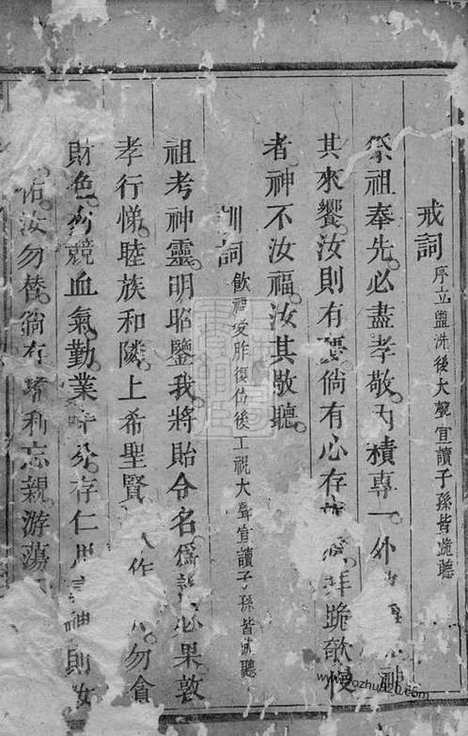 戒詞 序立盥洗後大聲宣讀子孫皆跪聽
祭祖奉先必盡孝敬內積專一外
其來饗汝則有慶倘有心存 拜跪欹慢
者神不汝福汝其敬聽
訓詞 飲福受胙復位後工祝大聲宣讀子孫皆跪聽
祖考神靈明昭鑒我將貽令名為善必果敦
孝行悌睦族和隣上希聖賢 作 勿貪
財色勿競血氣勤業 存仁 神則汝
佑汝勿替倘有嗜利忘親游蕩